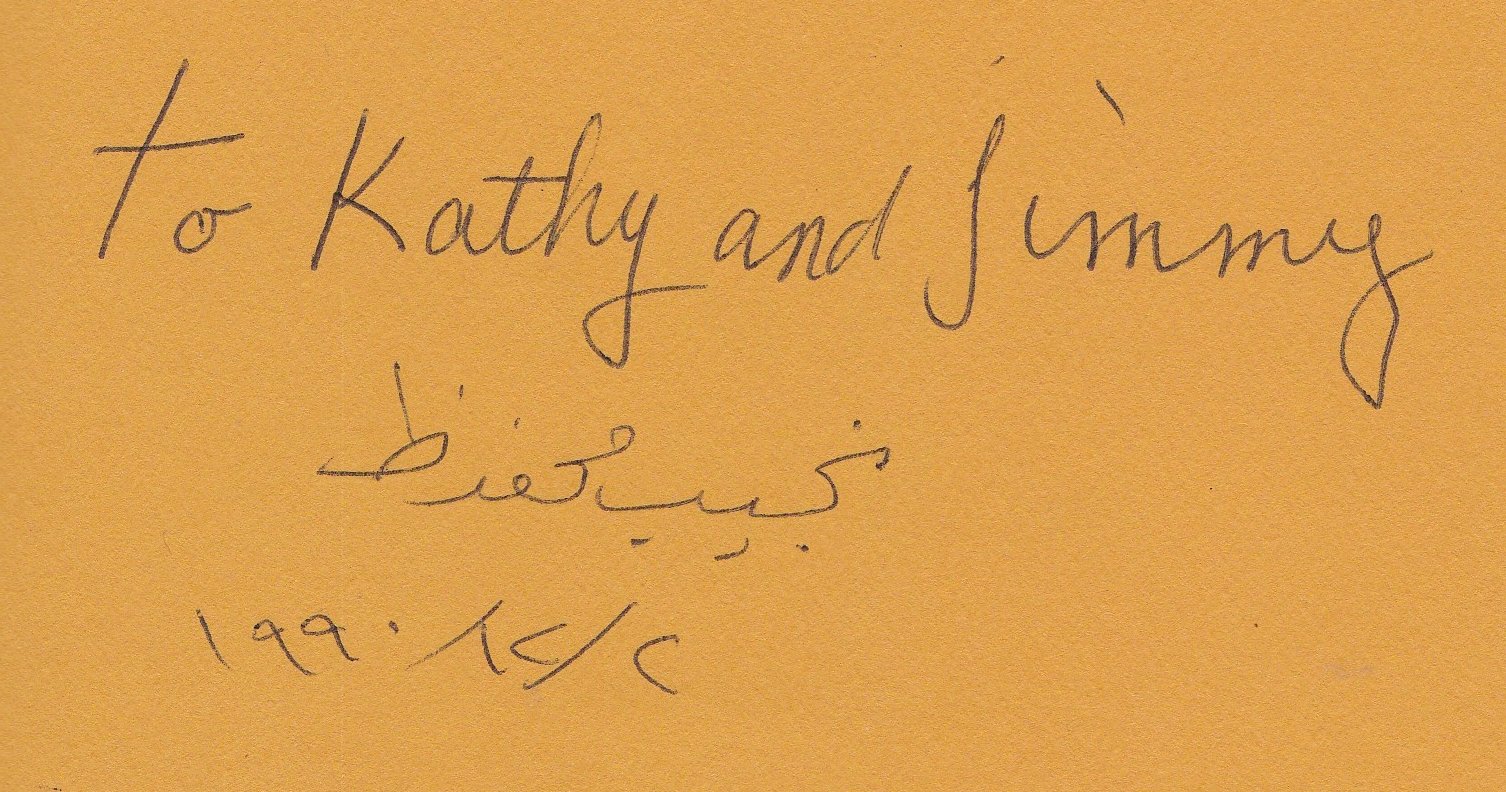 To Kathy and Jimmy
نجيب محفوظ
١٩٩٠/١٢/٢